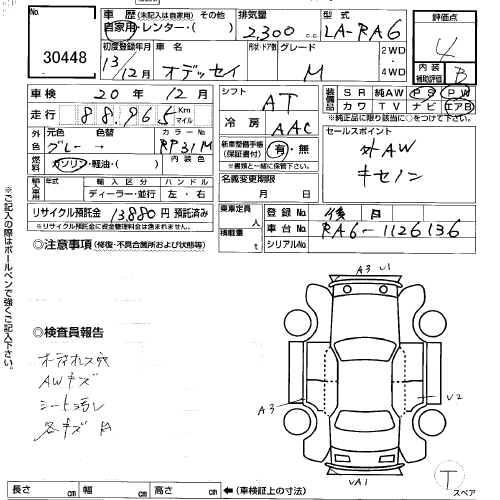 No.
30448
車歴 (未記入は自家用) その他
自家用・レンター・( )
排気量
2,300 cc
型式
LA-RA6
評価点
4
内装
補助評価
B
初度登録年月
13/12月
車名
オデッセイ
形状・ドア数
グレード
M
2WD
4WD
車検 20年 12月
走行 88,965 Km
マイル
シフト
AT
冷房
AAC
装備品
SR 純AW PS PW
カワ TV ナビ エアB
※純正品に限り該当に○をつけて下さい。
外色
元色 色替 カラーNo.
グレー → RP31M
燃料
ガソリン・軽油・( )
内装色
新車整備手帳
(保証書付)
有・無
(書類と一緒に保管して下さい)
セールスポイント
外AW
キセノン
輸入車用
年式 輸入区分 ハンドル
ディーラー・並行 左・右
名義変更期限
月 日
リサイクル預託金 13880円 預託済み
※リサイクル預託金に資金管理料金は含まれません。
乗車定員 人
積載量 t
登録No. 後日
車台No. RA6-1126136
シリアルNo.
◎注意事項 (修復・不具合箇所および状態等)
※ご記入の際はボールペンで強くご記入下さい。
◎検査員報告
AWキズ
各キズA
A3 U1
A3
U2
VA1
T
スペア
長さ cm 幅 cm 高さ cm ←(車検証上の寸法)